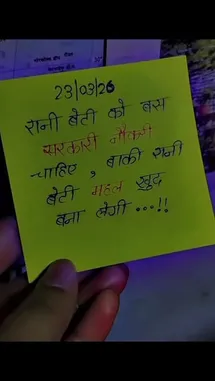 23/03/26
रानी बेटी को बस
सरकारी नौकरी
चाहिए , बाकी रानी
बेटी महल खुद
बना लेगी ...!!